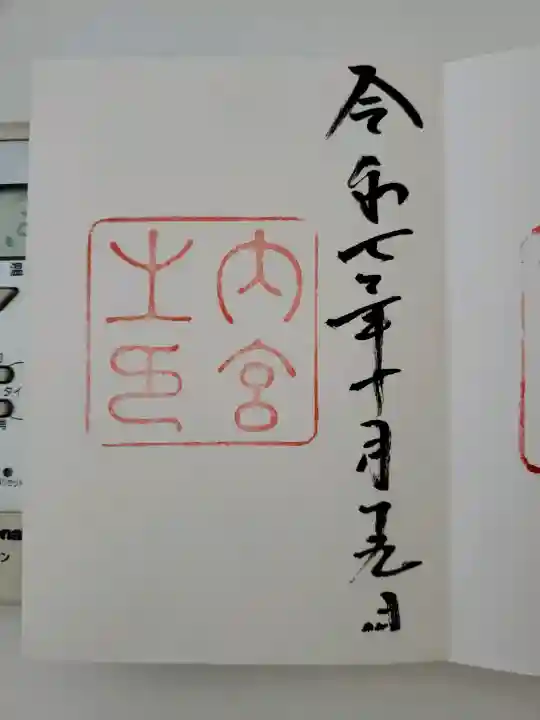 令和七年十月五日
内宮
之印
温
タイ
ン